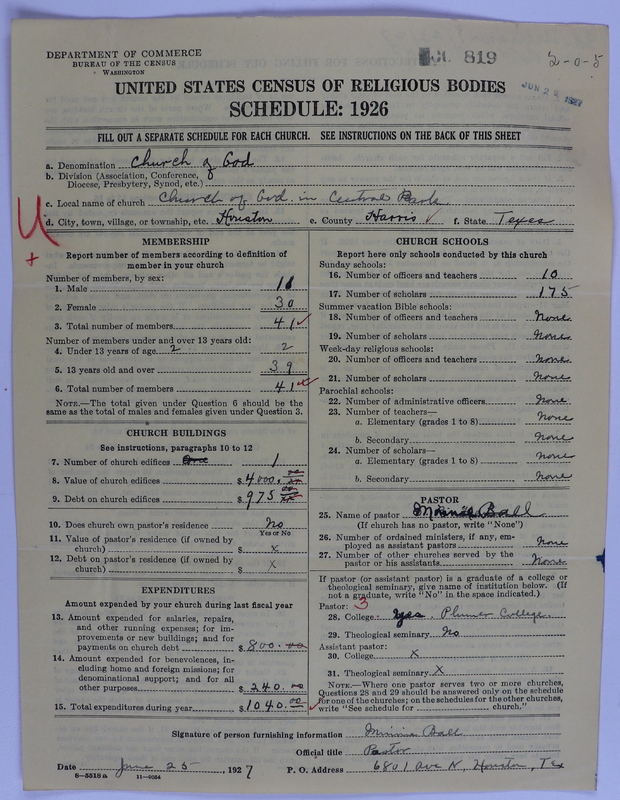 DEPARTMENT OF COMMERCE
BUREAU OF THE CENSUS
WASHINGTON
819
2-0-5
JUN 29 1927
UNITED STATES CENSUS OF RELIGIOUS BODIES
SCHEDULE: 1926
FILL OUT A SEPARATE SCHEDULE FOR EACH CHURCH. SEE INSTRUCTIONS ON THE BACK OF THIS SHEET
a. Denomination Church of God
b. Division (Association, Conference, Diocese, Presbytery, Synod, etc.)
c. Local name of church Church of God in Central Park
d. City, town, village, or township, etc. Houston e. County Harris f. State Texas
MEMBERSHIP
Report number of members according to definition of member in your church
Number of members, by sex:
1. Male 11
2. Female 30
3. Total number of members 41
Number of members under and over 13 years old:
4. Under 13 years of age 2 2
5. 13 years old and over 39
6. Total number of members 41
NOTE.—The total given under Question 6 should be the same as the total of males and females given under Question 3.
CHURCH BUILDINGS
See instructions, paragraphs 10 to 12
7. Number of church edifices One 1
8. Value of church edifices $4000.00
9. Debt on church edifices $975.00
10. Does church own pastor's residence No
Yes or No
11. Value of pastor's residence (if owned by church) $ x
12. Debt on pastor's residence (if owned by church) $ x
EXPENDITURES
Amount expended by your church during last fiscal year
13. Amount expended for salaries, repairs, and other running expenses; for improvements or new buildings; and for payments on church debt $800.00
14. Amount expended for benevolences, including home and foreign missions; for denominational support; and for all other purposes $240.00
15. Total expenditures during year $1040.00
CHURCH SCHOOLS
Report here only schools conducted by this church
Sunday schools:
16. Number of officers and teachers 10
17. Number of scholars 175
Summer vacation Bible schools:
18. Number of officers and teachers None
19. Number of scholars None
Week-day religious schools:
20. Number of officers and teachers None
21. Number of scholars None
Parochial schools:
22. Number of administrative officers None
23. Number of teachers—
a. Elementary (grades 1 to 8) None
b. Secondary None
24. Number of scholars—
a. Elementary (grades 1 to 8) None
b. Secondary None
PASTOR
25. Name of pastor Minnie Ball
(If church has no pastor, write "None")
26. Number of ordained ministers, if any, employed as assistant pastors None
27. Number of other churches served by the pastor or his assistants None
If pastor (or assistant pastor) is a graduate of a college or theological seminary, give name of institution below. (If not a graduate, write "No" in the space indicated.)
Pastor: 3
28. College Yes. Plumer College
29. Theological seminary No
Assistant pastor:
30. College X
31. Theological seminary X
NOTE.—Where one pastor serves two or more churches, Questions 28 and 29 should be answered only on the schedule for one of the churches; on the schedules for the other churches, write "See schedule for church."
Signature of person furnishing information Minnie Ball
Official title Pastor
Date June 25, 1927 P. O. Address 6801 Ave N, Houston, Tex
8-5518a 11-9054